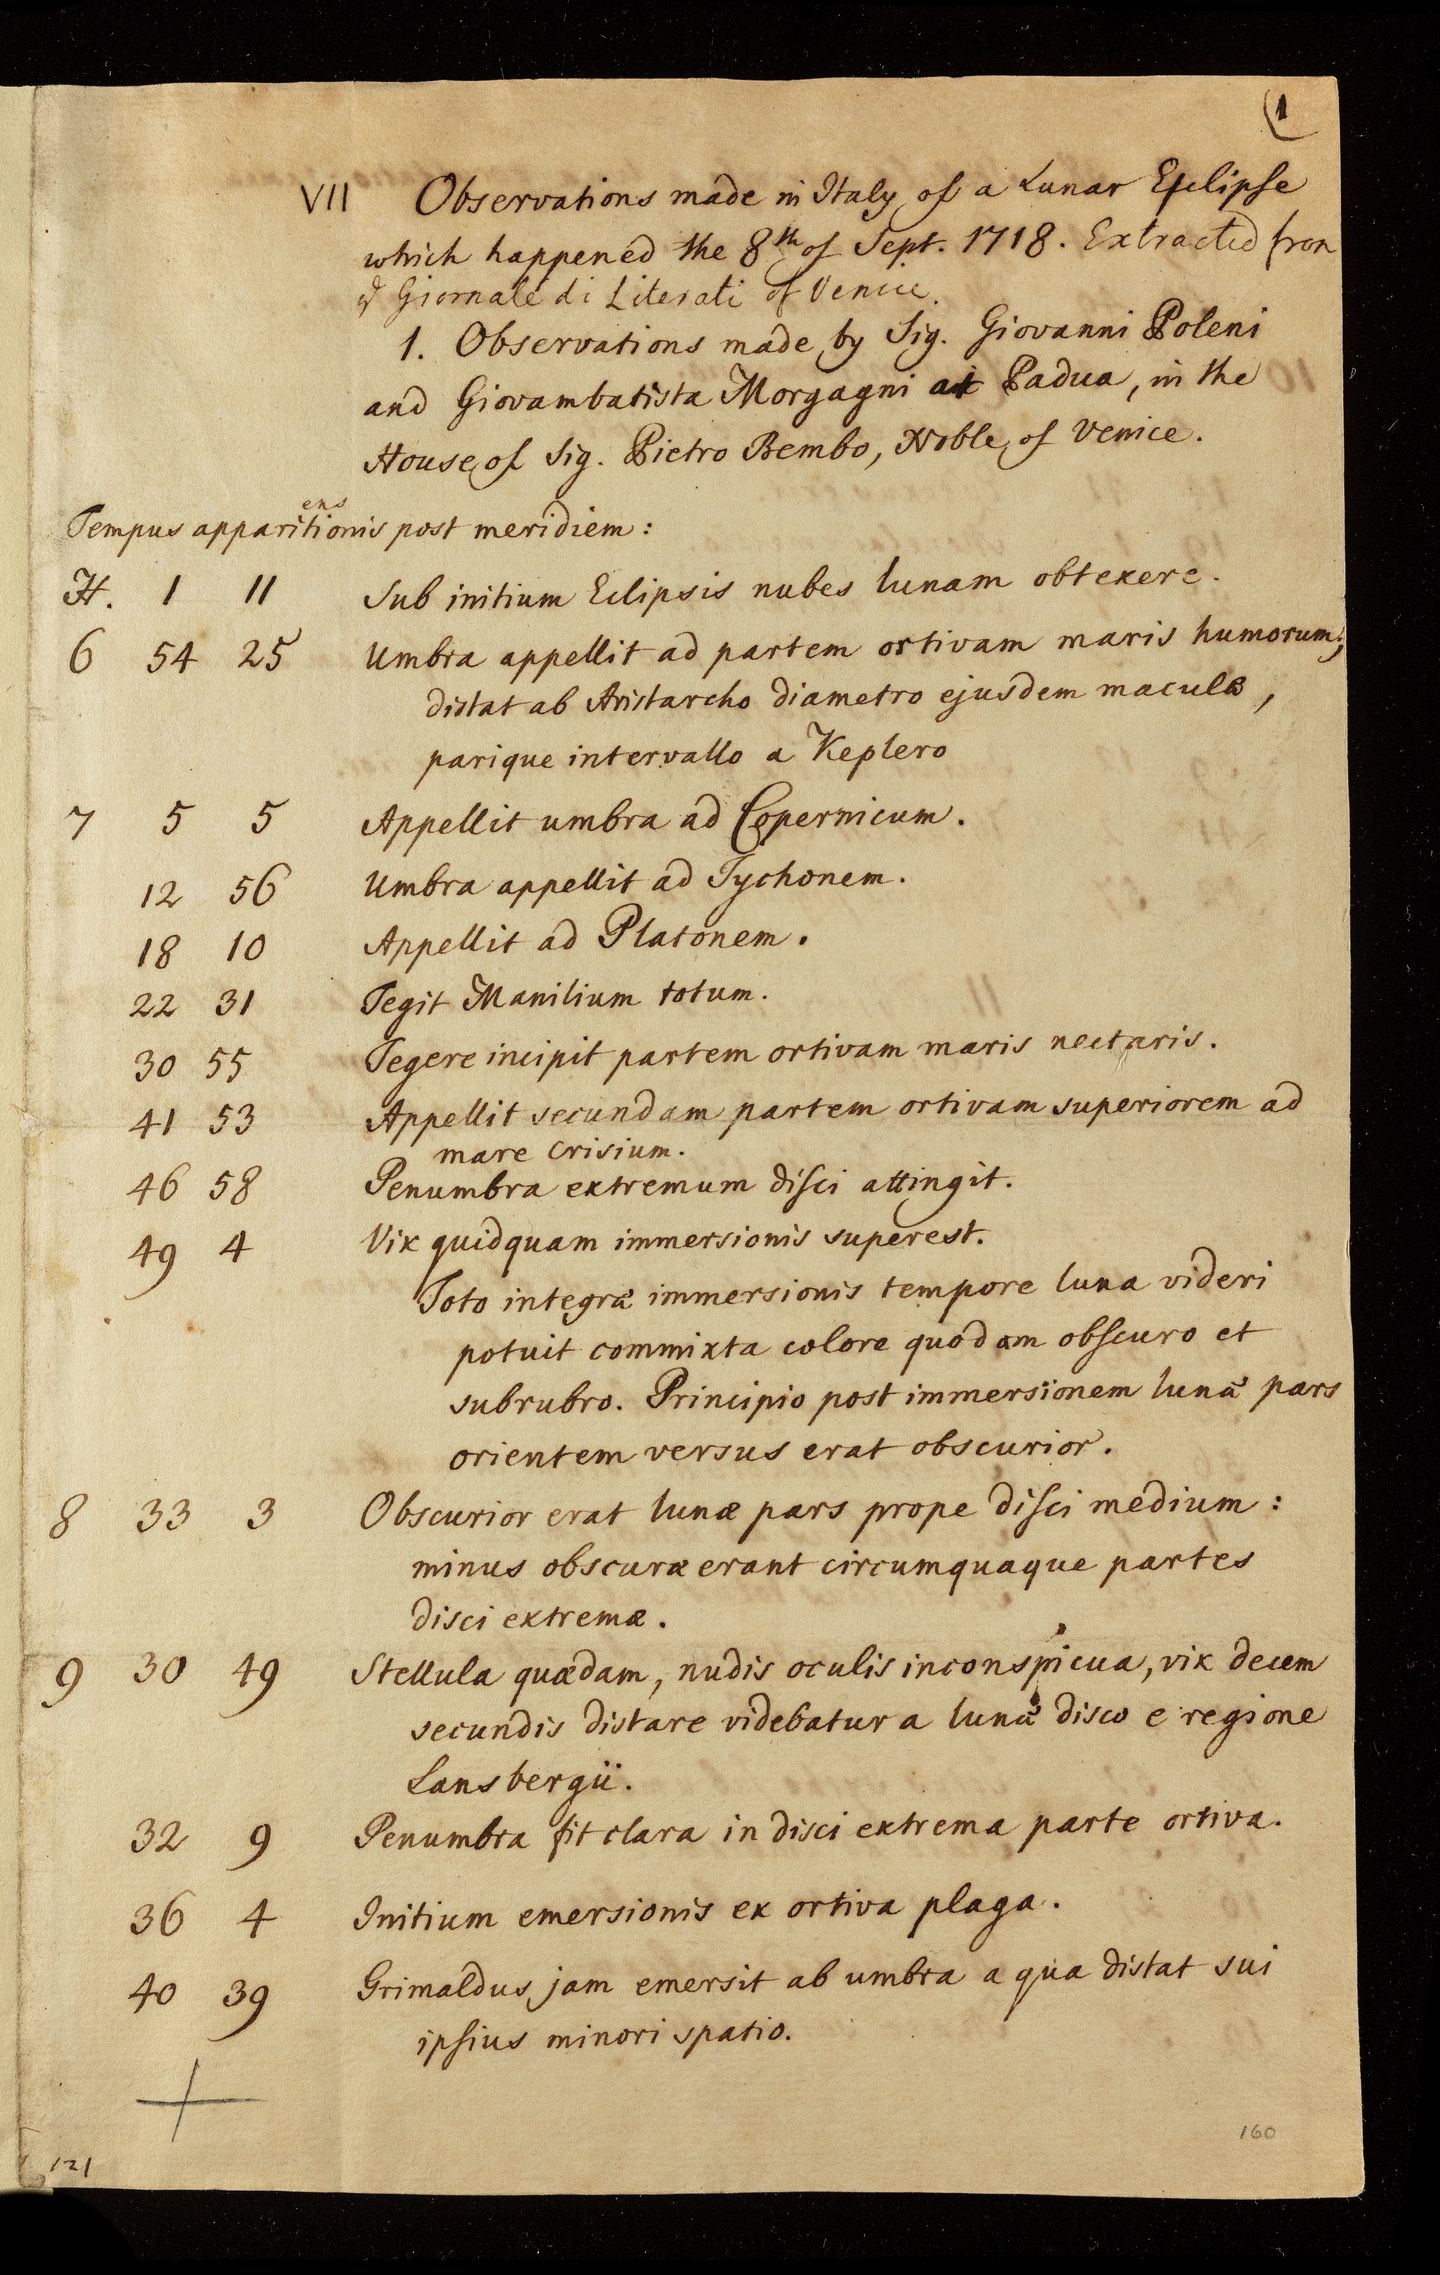 (1
VII Observations made in Italy of a Lunar Eclipse
which happened the 8th of Sept. 1718. Extracted from
ye Giornale di Literati of Venice.
1. Observations made by Sig. Giovanni Poleni
and Giovambatista Morgagni at Padua, in the
House of Sig. Pietro Bembo, Noble of Venice.
ens
Tempus apparitionis post meridiem:
H. 1 11 Sub initium Eclipsis nubes lunam obtexere.
6 54 25 Umbra appellit ad partem ortivam maris humorum;
distat ab Aristarcho diametro ejusdem maculæ,
parique intervallo a Keplero
7 5 5 Appellit umbra ad Copernicum.
12 56 Umbra appellit ad Tychonem.
18 10 Appellit ad Platonem.
22 31 Tegit Manilium totum.
30 55 Tegere incipit partem ortivam maris nectaris.
41 53 Appellit secundam partem ortivam superiorem ad
mare Crisium.
46 58 Penumbra extremum disci attingit.
49 4 Vix quidquam immersionis superest.
Toto integræ immersionis tempore luna videri
potuit commixta colore quodam obscuro et
subrubro. Principio post immersionem lunæ pars
orientem versus erat obscurior.
8 33 3 Obscurior erat lunæ pars prope disci medium:
minus obscuræ erant circumquaque partes
disci extremæ.
9 30 49 Stellula quædam, nudis oculis inconspicua, vix decem
secundis distare videbatur a lunæ disco e regione
Lansbergii.
32 9 Penumbra fit clara in disci extrema parte ortiva.
36 4 Initium emersionis ex ortiva plaga.
40 39 Grimaldus jam emersit ab umbra a qua distat sui
ipsius minori spatio.
160
121